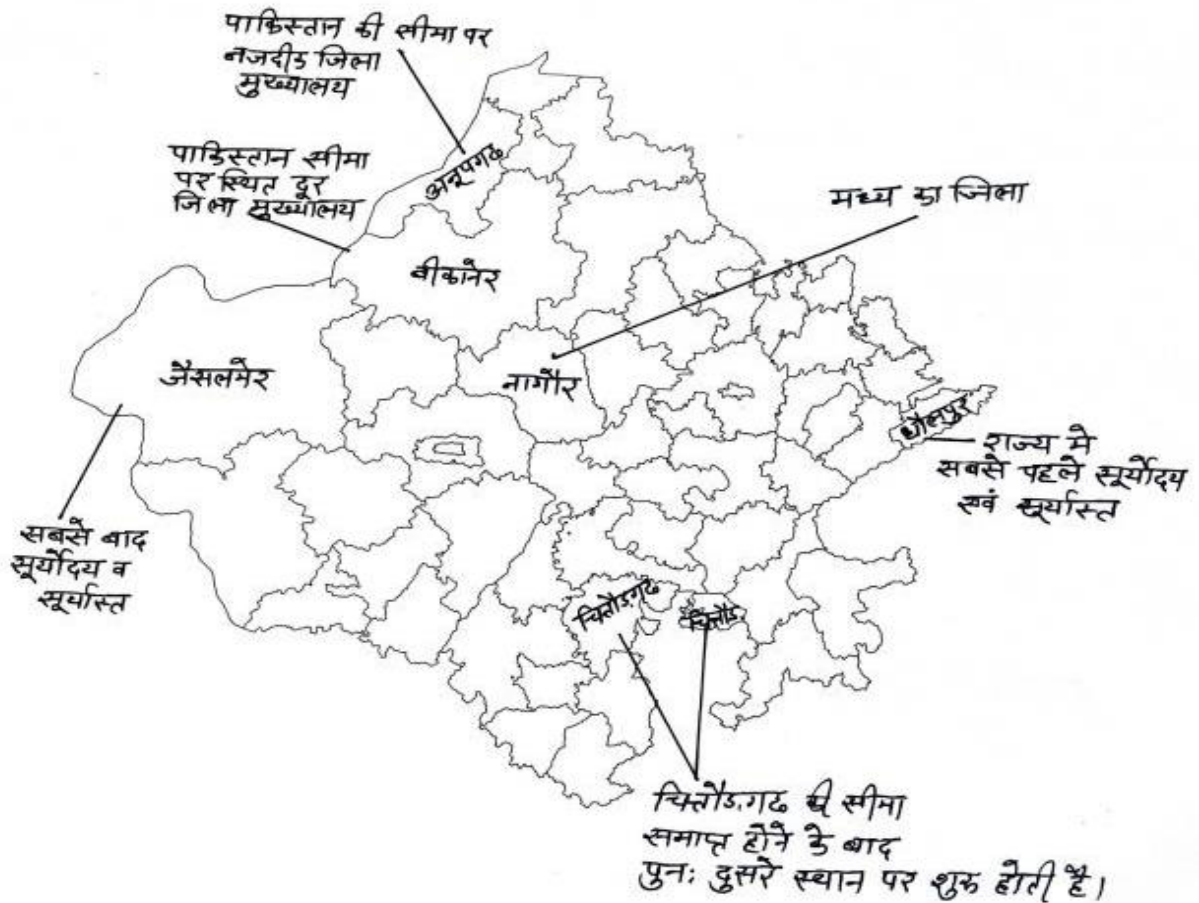 पाकिस्तान की सीमा पर
नजदीक जिला
मुख्यालय
पाकिस्तान सीमा
पर स्थित दूर
जिला मुख्यालय
अनूपगढ
मध्य का जिला
बीकानेर
जैसलमेर
नागौर
धौलपुर
राज्य मे
सबसे पहले सूर्योदय
एवं सूर्यास्त
सबसे बाद
सूर्योदय व
सूर्यास्त
चितौड़गढ
चितौड़
चितौड़गढ की सीमा
समाप्त होने के बाद
पुनः दुसरे स्थान पर शुरू होती है।